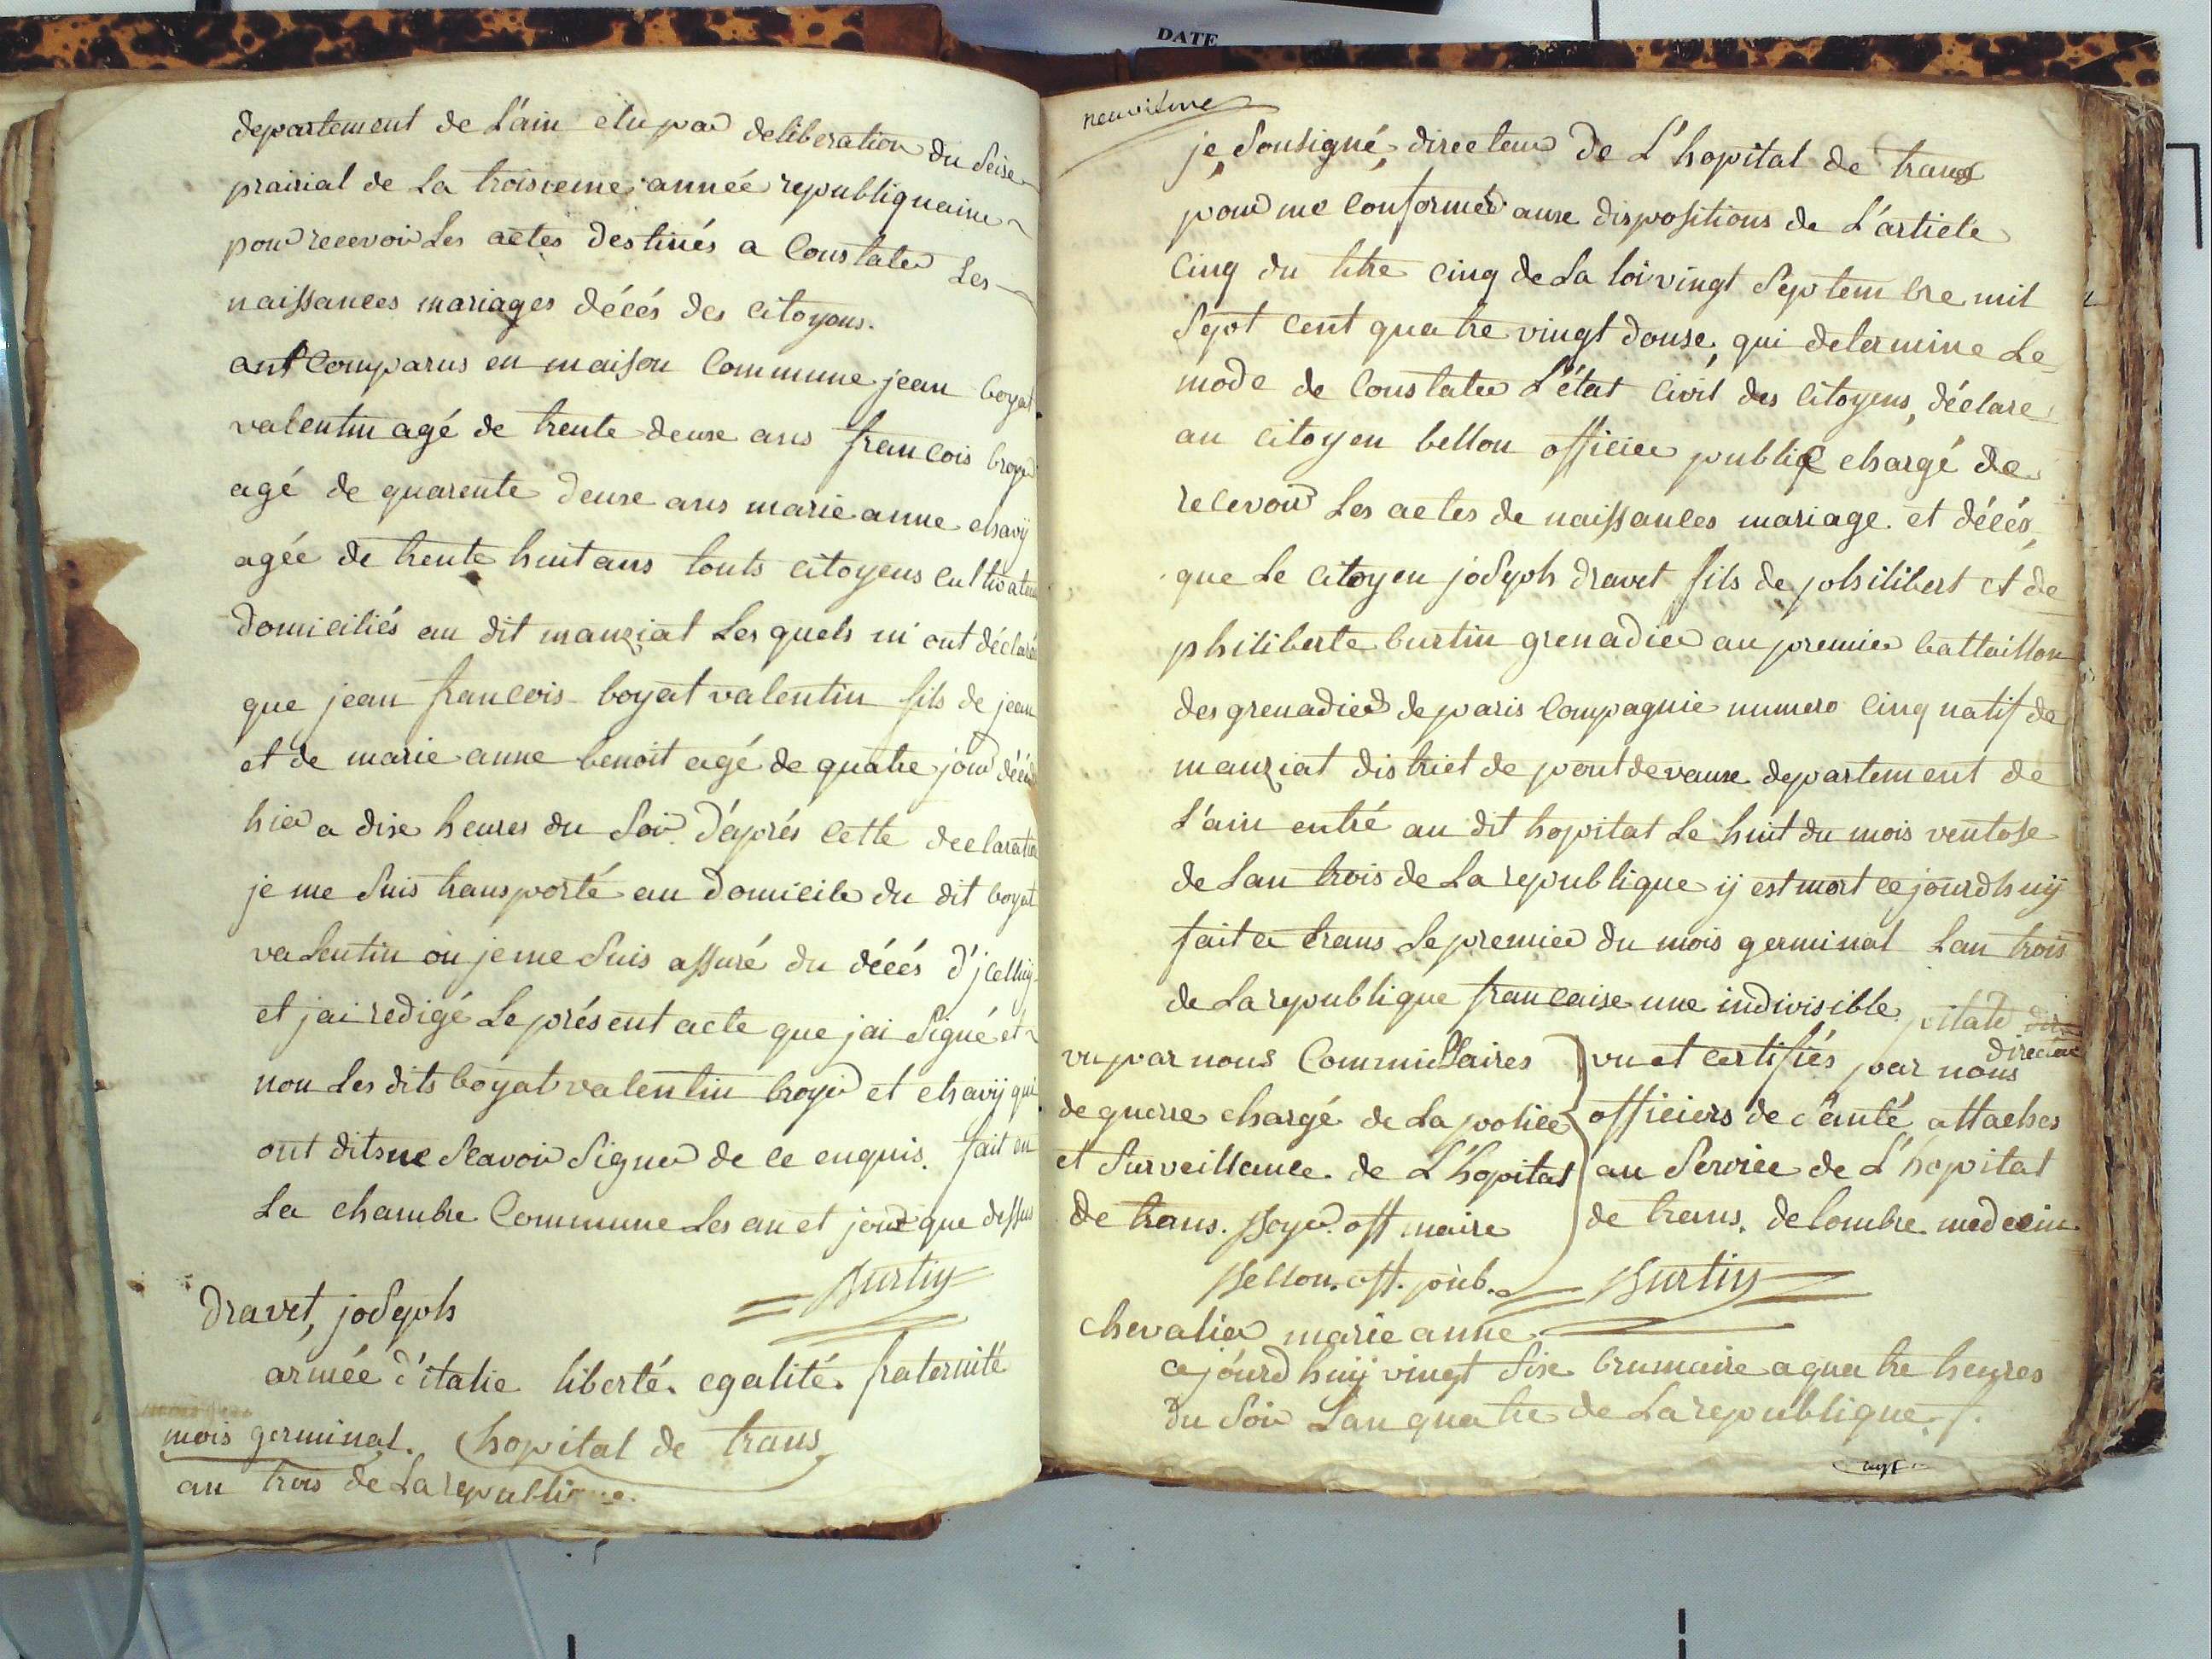 DATE
departement de L'ain elu par deliberation du Seise
prairial de La troisieme année republiquaine
pour recevoir Les actes destinés a Constater Les
naissances mariages décés des citoyens.
ont Comparus en maison Commune jean boyat
valentin agé de trente deuxe ans francois broyer
agé de quarente deuxe ans marie anne chavÿ
agée de trente huit ans touts citoyens cultivateurs
domiciliés au dit manziat Les quels m'ont déclaré
que jean francois boyat valentin fils de jean
et de marie anne benoit agé de quatre jour décédé
hier a dixe heures du Soir. D'aprés cette declaration
je me Suis transporté au domicile du dit boyat
valentin où je me Suis assuré du décés d'jcelluÿ
et jai redigé Le présent acte que jai Signé et
non Les dits boyat valentin broyer et chavÿ qui
ont dits ne Scavoir Signer de ce enquis. fait en
La chambre Commune Les an et jour que dessus
Burtin
Dravet, joseph
armée d'italie liberté. egalité. fraternité
mois germinal. hopital de trans
an trois de La republique.
neuvieme
je Sousigné, directeur de L'hopital de trans
pour me Conformer auxe dispositions de L'article
Cinq du titre cinq de La loi vingt Septembre mil
Sept cent quatre vingt douse, qui determine Le
mode de Constater L'état Civil des Citoyens, déclare
au citoyen bellon officier public chargé de
recevoir Les actes de naissances mariage. et décés,
que Le citoyen joseph dravet fils de philibert et de
philiberte burtin grenadier au premier battaillon
des grenadier de paris Compagnie numero Cinq natif de
manziat district de pontdevauxe departement de
L'ain entré au dit hopital Le huit du mois ventose
de Lan trois de La republique ÿ est mort ce jourdhuÿ
fait a trans Le premier du mois germinal Lan trois
de La republique francaise une indivisible
directeur
vu par nous Commissaires
de guerre chargé de La police
et Surveillance de L'hopital
de trans. Boyer. off maire
Bellon. off. pub.
vu et certifiés par nous
officiers de Santé attaches
au Service de L'hopital
de trans. delombre medecin
Burtin
chevalier marie anne.
ce jourdhuÿ vingt Sixe brumaire a quatre heures
du Soir Lan quatre de La republique.